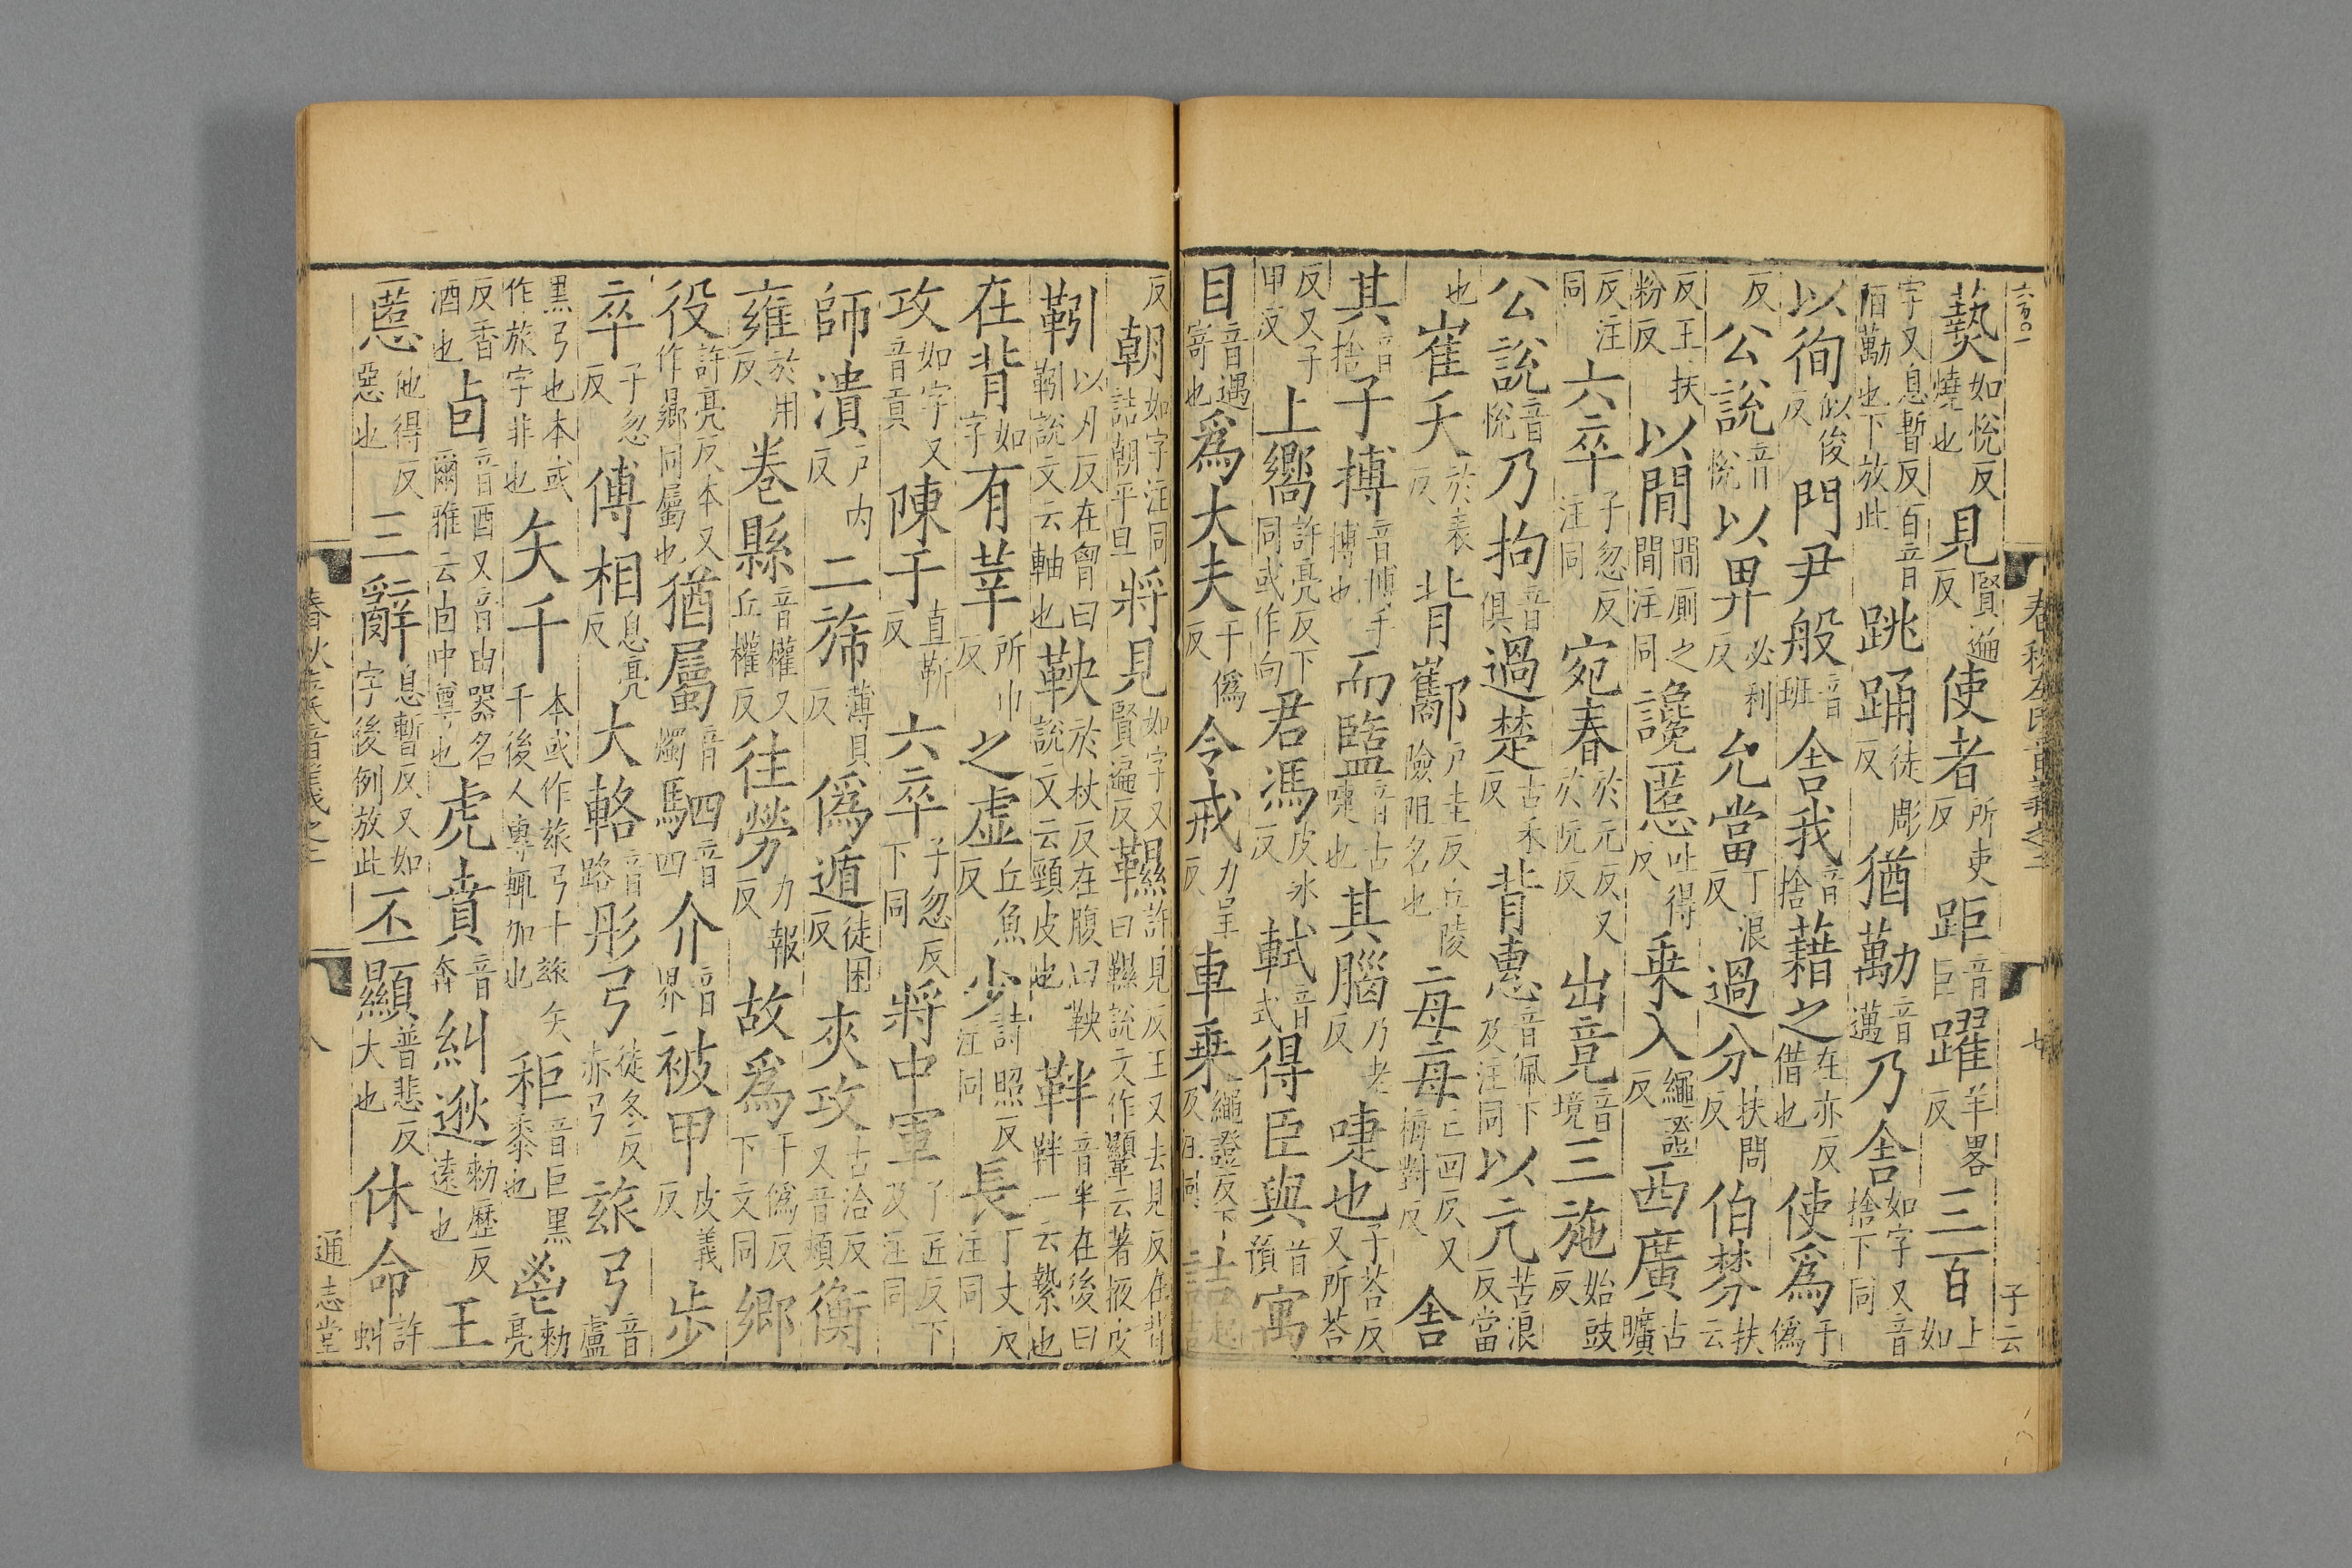 春秋左氏音義之二 七 子云
爇如悅反燒也見賢遍反使者所吏反距音巨躍羊畧反三百上如
字又息暫反百音陌勱也下放此跳踊徒彫反猶勱音邁乃舍如字又音捨下同
以徇似俊反門尹般音班舍我音捨藉之在亦反借也使爲于僞
反公說音悅以畀必利反允當丁浪反過分扶問反伯棼扶云
反王扶粉反以間間厠之間注同讒慝吐得反乗入繩證反西廣古曠
反注同六卒子忽反注同宛春於元反又於阮反出竟音境三施始豉反
公說音悅乃拘音俱過楚古禾反背惠音佩下及注同以亢苦浪反當
也崔夭於表反背酅戸圭反丘陵險阻名也每每亡回反又梅對反舍
其音捨子搏音博手搏也而盬音古啑也其腦乃老反啑也子荅反又所荅
反又子甲反上嚮許亮反下同或作向君馮皮氷反軾音式得臣與音預寓
目音遇寄也爲大夫于僞反令戒力呈反車乗繩證反下及注同詰起吉
反朝如字注同詰朝平旦將見如字又賢遍反韅許見反王又去見反在背曰韅說文作顯云著掖皮
靷以刃反在胷曰靷說文云軸也鞅於杖反在腹曰鞅說文云頸皮也靽音半在後曰靽一云縶也
在背如字有莘所巾反之虛丘魚反少詩照反注同長丁丈反注同
攻如字又音貢陳于直靳反六卒子忽反下同將中軍子匠反下及注同
師潰戸内反二旆薄貝反偽遁徒困反夾攻古洽反又音頰衡
雍於用反卷縣音權又丘權反往勞力報反故爲于僞反下文同鄉
役許亮反本又作曏同屬也猶屬音燭駟音四介音界被甲皮義反步
卒子忽反傅相息亮反大輅音路彤弓徒冬反赤弓玈弓音盧
黑弓也本或作旅字非也矢千本或作玈弓十玈矢千後人專輒加也秬音巨黑黍也鬯勑亮
反香酒也卣音酉又音由器名爾雅云卣中尊也虎賁音奔糾逖勑歷反遠也王
慝他得反惡也三辭息暫反又如字後例放此丕顯普悲反大也休命許虯
春秋左氏音義之二 八 通志堂